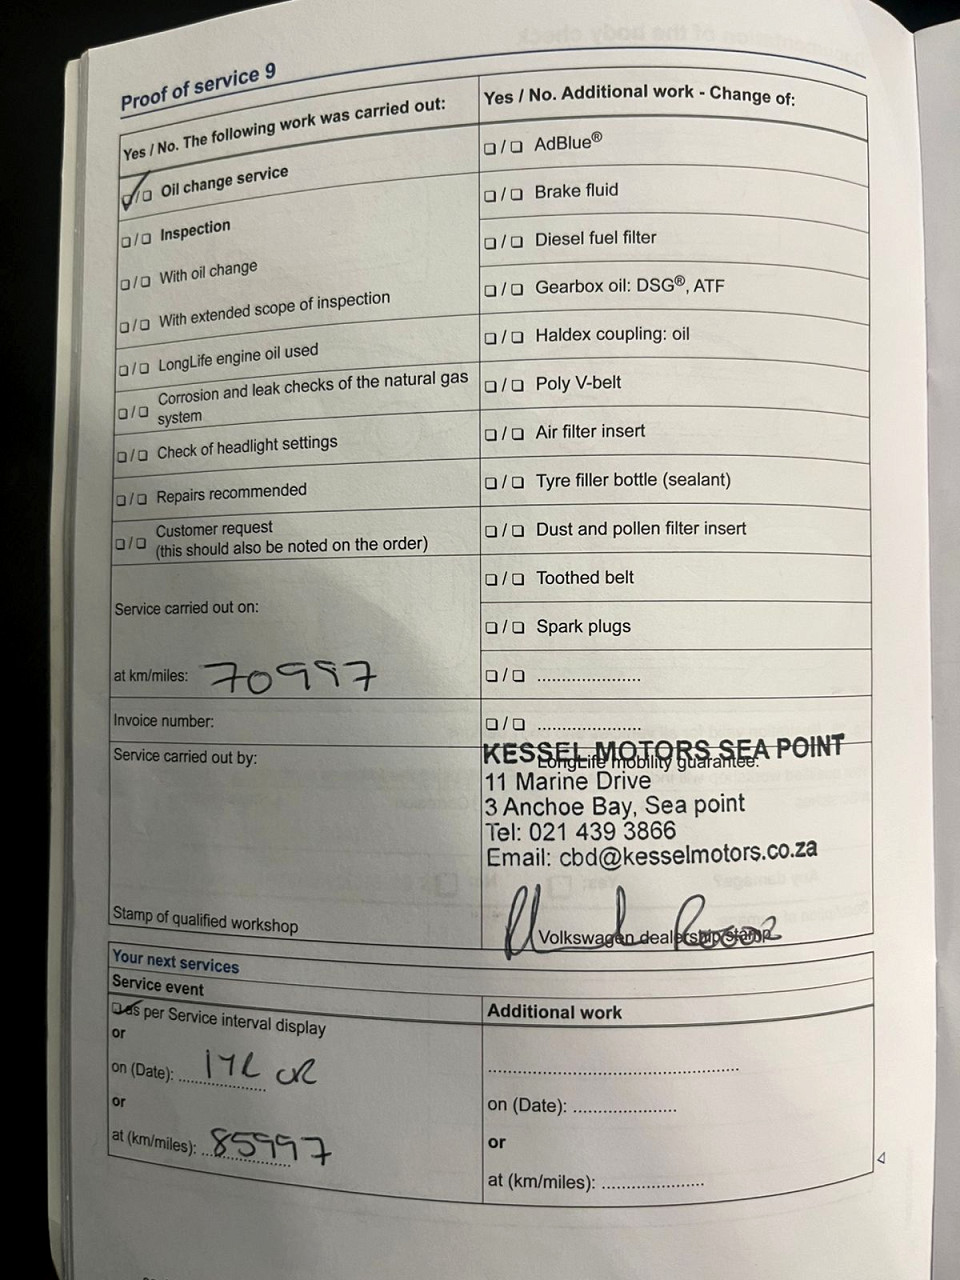 Proof of service 9
Yes / No. The following work was carried out:
❏/❏ Oil change service
❏/❏ Inspection
❏/❏ With oil change
❏/❏ With extended scope of inspection
❏/❏ LongLife engine oil used
❏/❏ Corrosion and leak checks of the natural gas
system
❏/❏ Check of headlight settings
❏/❏ Repairs recommended
❏/❏ Customer request
(this should also be noted on the order)
Service carried out on:
at km/miles: 70997
Invoice number:
Service carried out by:
Stamp of qualified workshop
Yes / No. Additional work - Change of:
❏/❏ AdBlue®
❏/❏ Brake fluid
❏/❏ Diesel fuel filter
❏/❏ Gearbox oil: DSG®, ATF
❏/❏ Haldex coupling: oil
❏/❏ Poly V-belt
❏/❏ Air filter insert
❏/❏ Tyre filler bottle (sealant)
❏/❏ Dust and pollen filter insert
❏/❏ Toothed belt
❏/❏ Spark plugs
❏/❏ .....................
❏/❏ .....................
KESSEL MOTORS SEA POINT
LongLife mobility guarantee:
11 Marine Drive
3 Anchoe Bay, Sea point
Tel: 021 439 3866
Email: cbd@kesselmotors.co.za
Volkswagen dealership stamp
Your next services
Service event
❏ as per Service interval display
or
on (Date): 1YR OR
or
at (km/miles): 85997
Additional work
..................................................
on (Date): .....................
or
at (km/miles): .....................